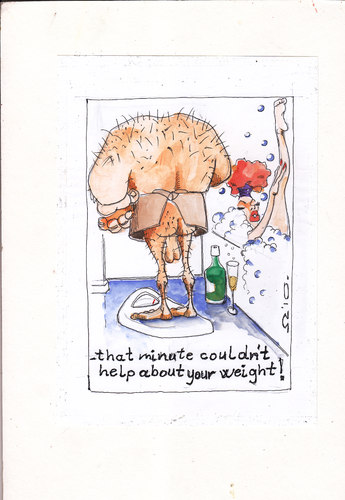 that minute couldn't
help about your weight!